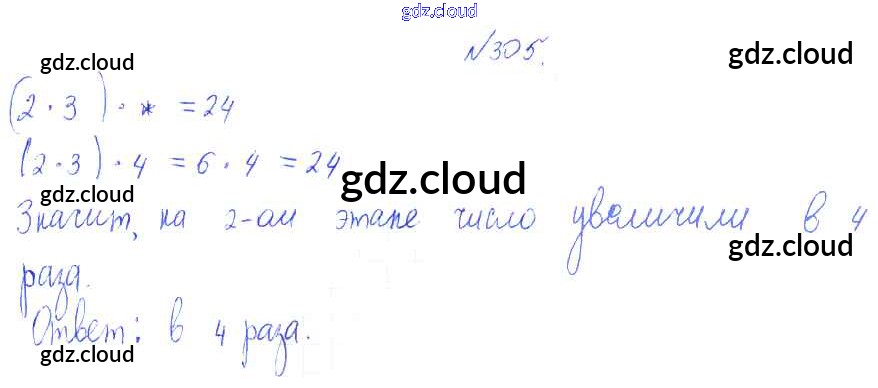 gdz.cloud
№305.
gdz.cloud
gdz.cloud
(2 · 3) · * = 24
gdz.cloud
gdz.cloud
(2 · 3) · 4 = 6 · 4 = 24
gdz.cloud
gdz.cloud
Значит, на 2-ом этапе число увеличили в 4
gdz.cloud
раза.
Ответ: в 4 раза.
gdz.cloud
gdz.cloud